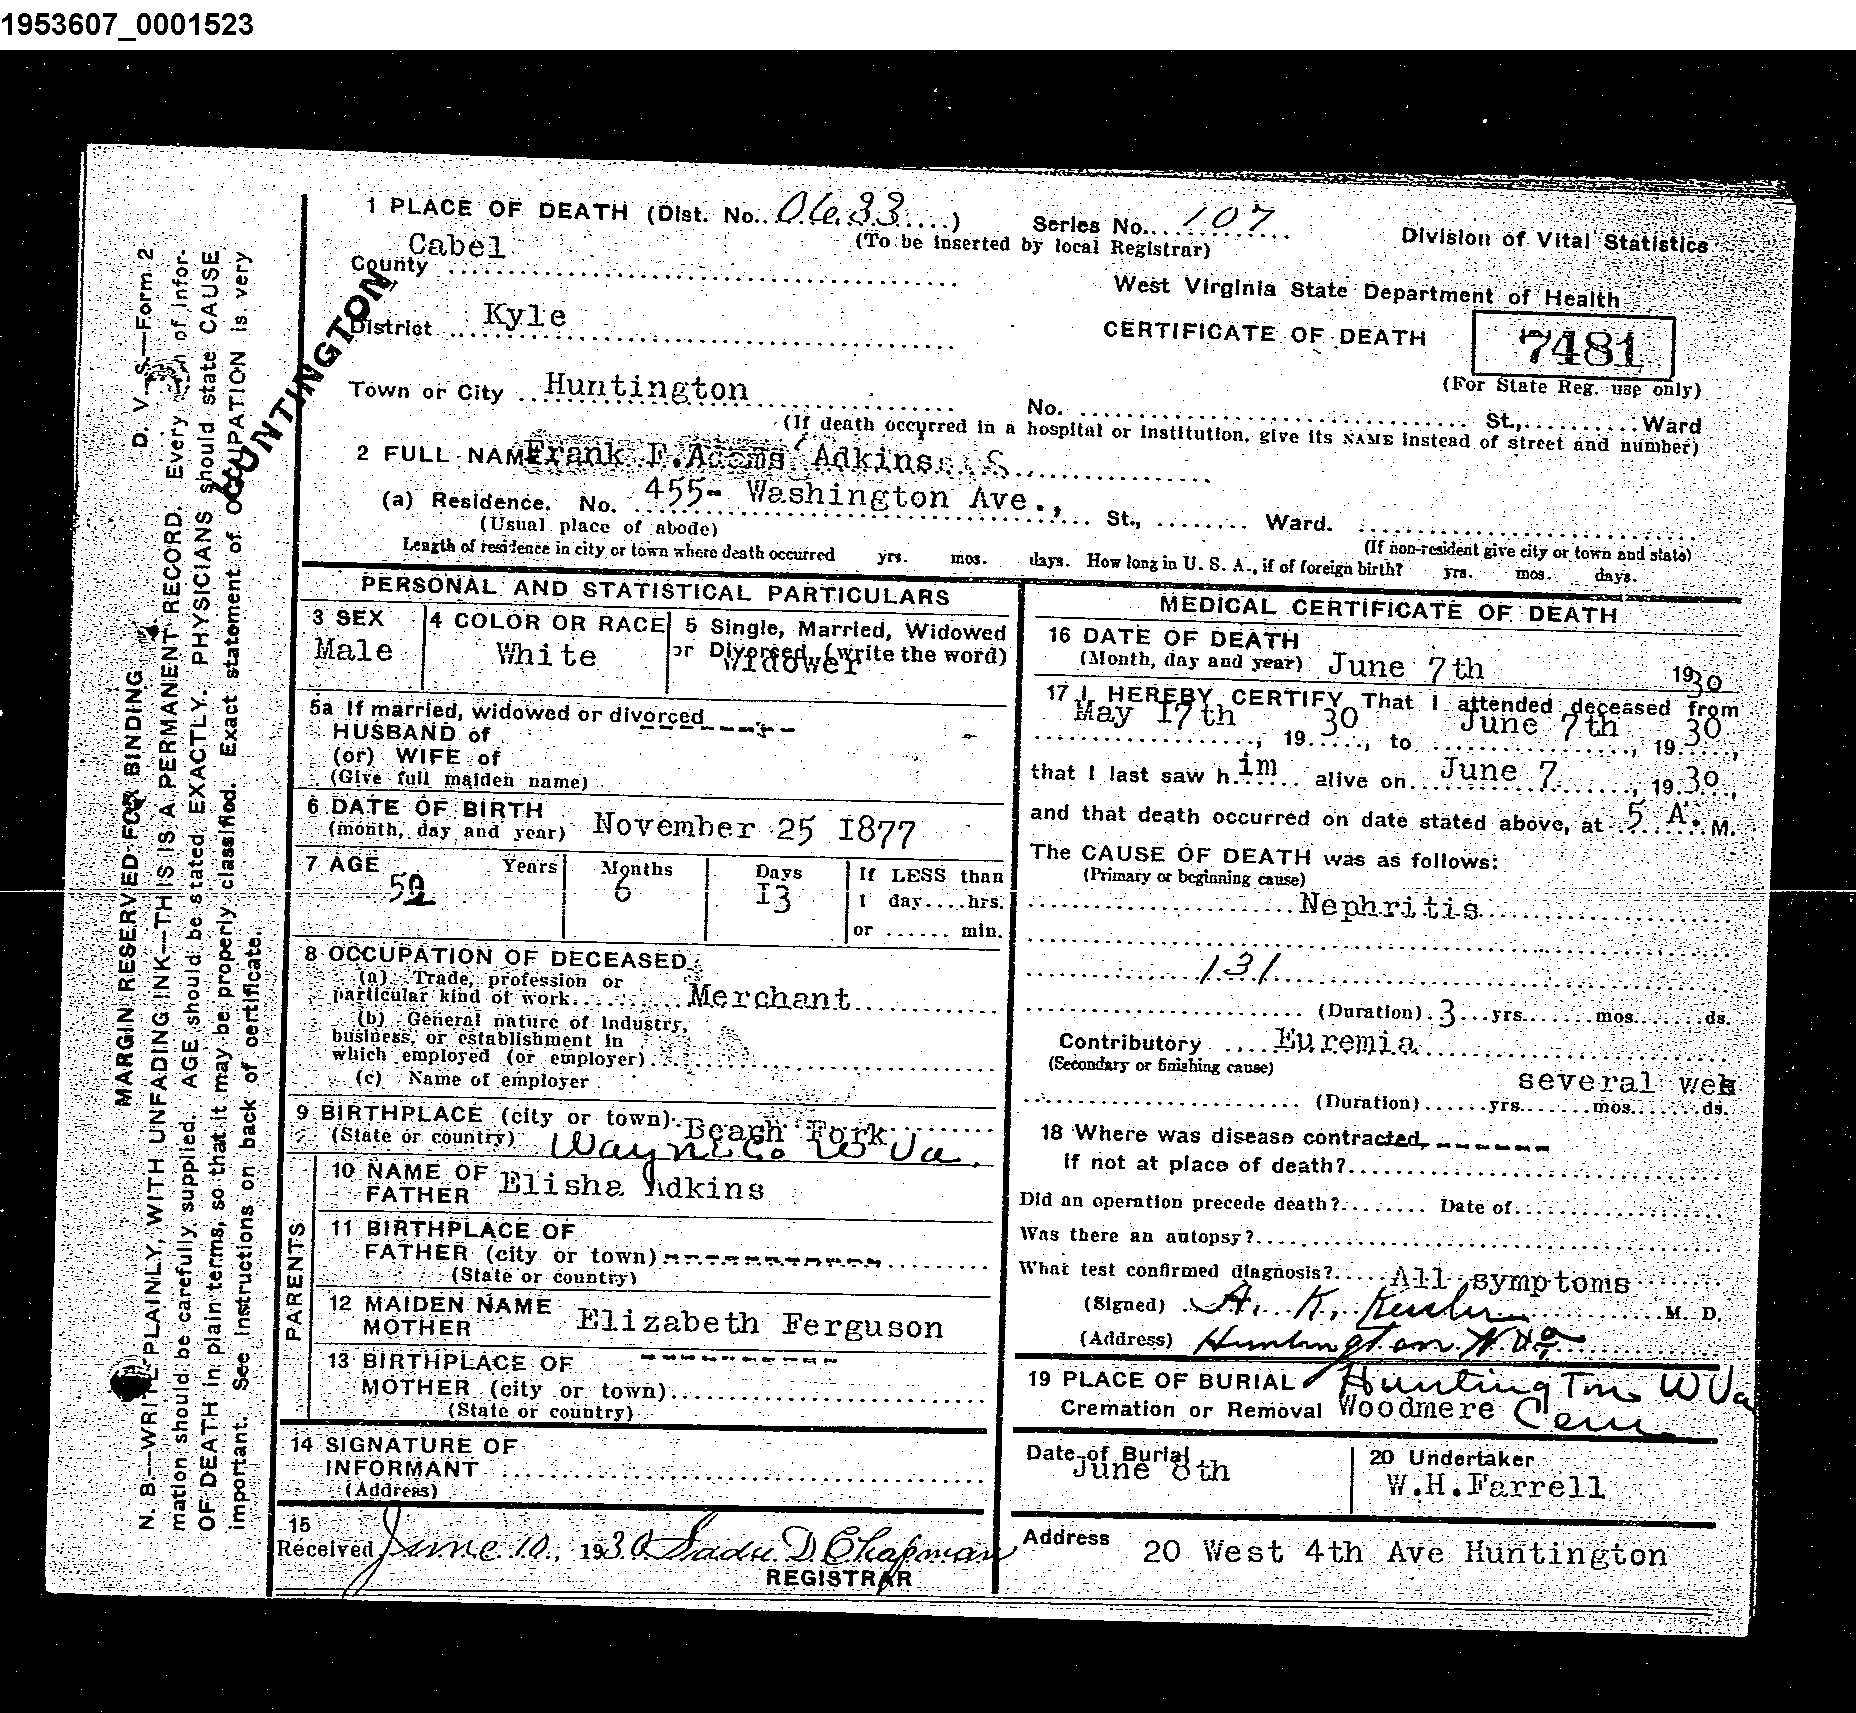 1953607_0001523
1 PLACE OF DEATH (Dist. No. 0633) Series No. 107
(To be inserted by local Registrar)
Division of Vital Statistics
County Cabel
West Virginia State Department of Health
District Kyle
CERTIFICATE OF DEATH 7481
(For State Reg. use only)
HUNTINGTON
Town or City Huntington
No. St., Ward
(If death occurred in a hospital or institution, give its NAME instead of street and number)
2 FULL NAME Frank Adkins
(a) Residence. No. 455- Washington Ave., St., Ward.
(Usual place of abode) (If non-resident give city or town and state)
Length of residence in city or town where death occurred yrs. mos. days. How long in U. S. A., if of foreign birth? yrs. mos. days.
PERSONAL AND STATISTICAL PARTICULARS
3 SEX
Male
4 COLOR OR RACE
White
5 Single, Married, Widowed
or Divorced (write the word)
Widower
5a If married, widowed or divorced
HUSBAND of
(or) WIFE of
(Give full maiden name)
6 DATE OF BIRTH
(month, day and year) November 25 1877
7 AGE Years Months Days If LESS than
52 6 13 1 day....hrs.
or ...... min.
8 OCCUPATION OF DECEASED
(a) Trade, profession or
particular kind of work Merchant
(b) General nature of Industry,
business, or establishment in
which employed (or employer)
(c) Name of employer
9 BIRTHPLACE (city or town) Beach Fork
(State or country) Wayne Co W Va.
PARENTS
10 NAME OF
FATHER Elisha Adkins
11 BIRTHPLACE OF
FATHER (city or town)
(State or country)
12 MAIDEN NAME
MOTHER Elizabeth Ferguson
13 BIRTHPLACE OF
MOTHER (city or town)
(State or country)
14 SIGNATURE OF
INFORMANT
(Address)
15
Received June 10, 1930 Sadie D Chapman
REGISTRAR
MEDICAL CERTIFICATE OF DEATH
16 DATE OF DEATH
(Month, day and year) June 7th 1930
17 I HEREBY CERTIFY That I attended deceased from
May 17th, 1930, to June 7th, 1930,
that I last saw him alive on June 7, 1930,
and that death occurred on date stated above, at 5 A. M.
The CAUSE OF DEATH was as follows:
(Primary or beginning cause)
Nephritis
131
(Duration) 3 yrs. mos. ds.
Contributory Euremia
(Secondary or finishing cause)
several weks
(Duration) yrs. mos. ds.
18 Where was disease contracted,
if not at place of death?
Did an operation precede death? Date of
Was there an autopsy?
What test confirmed diagnosis? All symptoms
(Signed) A. K. Kessler M. D.
(Address) Huntington W. Va
19 PLACE OF BURIAL Huntington W Va
Cremation or Removal Woodmere Cem
Date of Burial
June 8th
20 Undertaker
W.H.Farrell
Address 20 West 4th Ave Huntington
D. V. S.—Form 2
MARGIN RESERVED FOR BINDING
N. B.—WRITE PLAINLY, WITH UNFADING INK—THIS IS A PERMANENT RECORD. Every item of infor-
mation should be carefully supplied. AGE should be stated EXACTLY. PHYSICIANS should state CAUSE
OF DEATH in plain terms, so that it may be properly classified. Exact statement of OCCUPATION is very
important. See instructions on back of certificate.